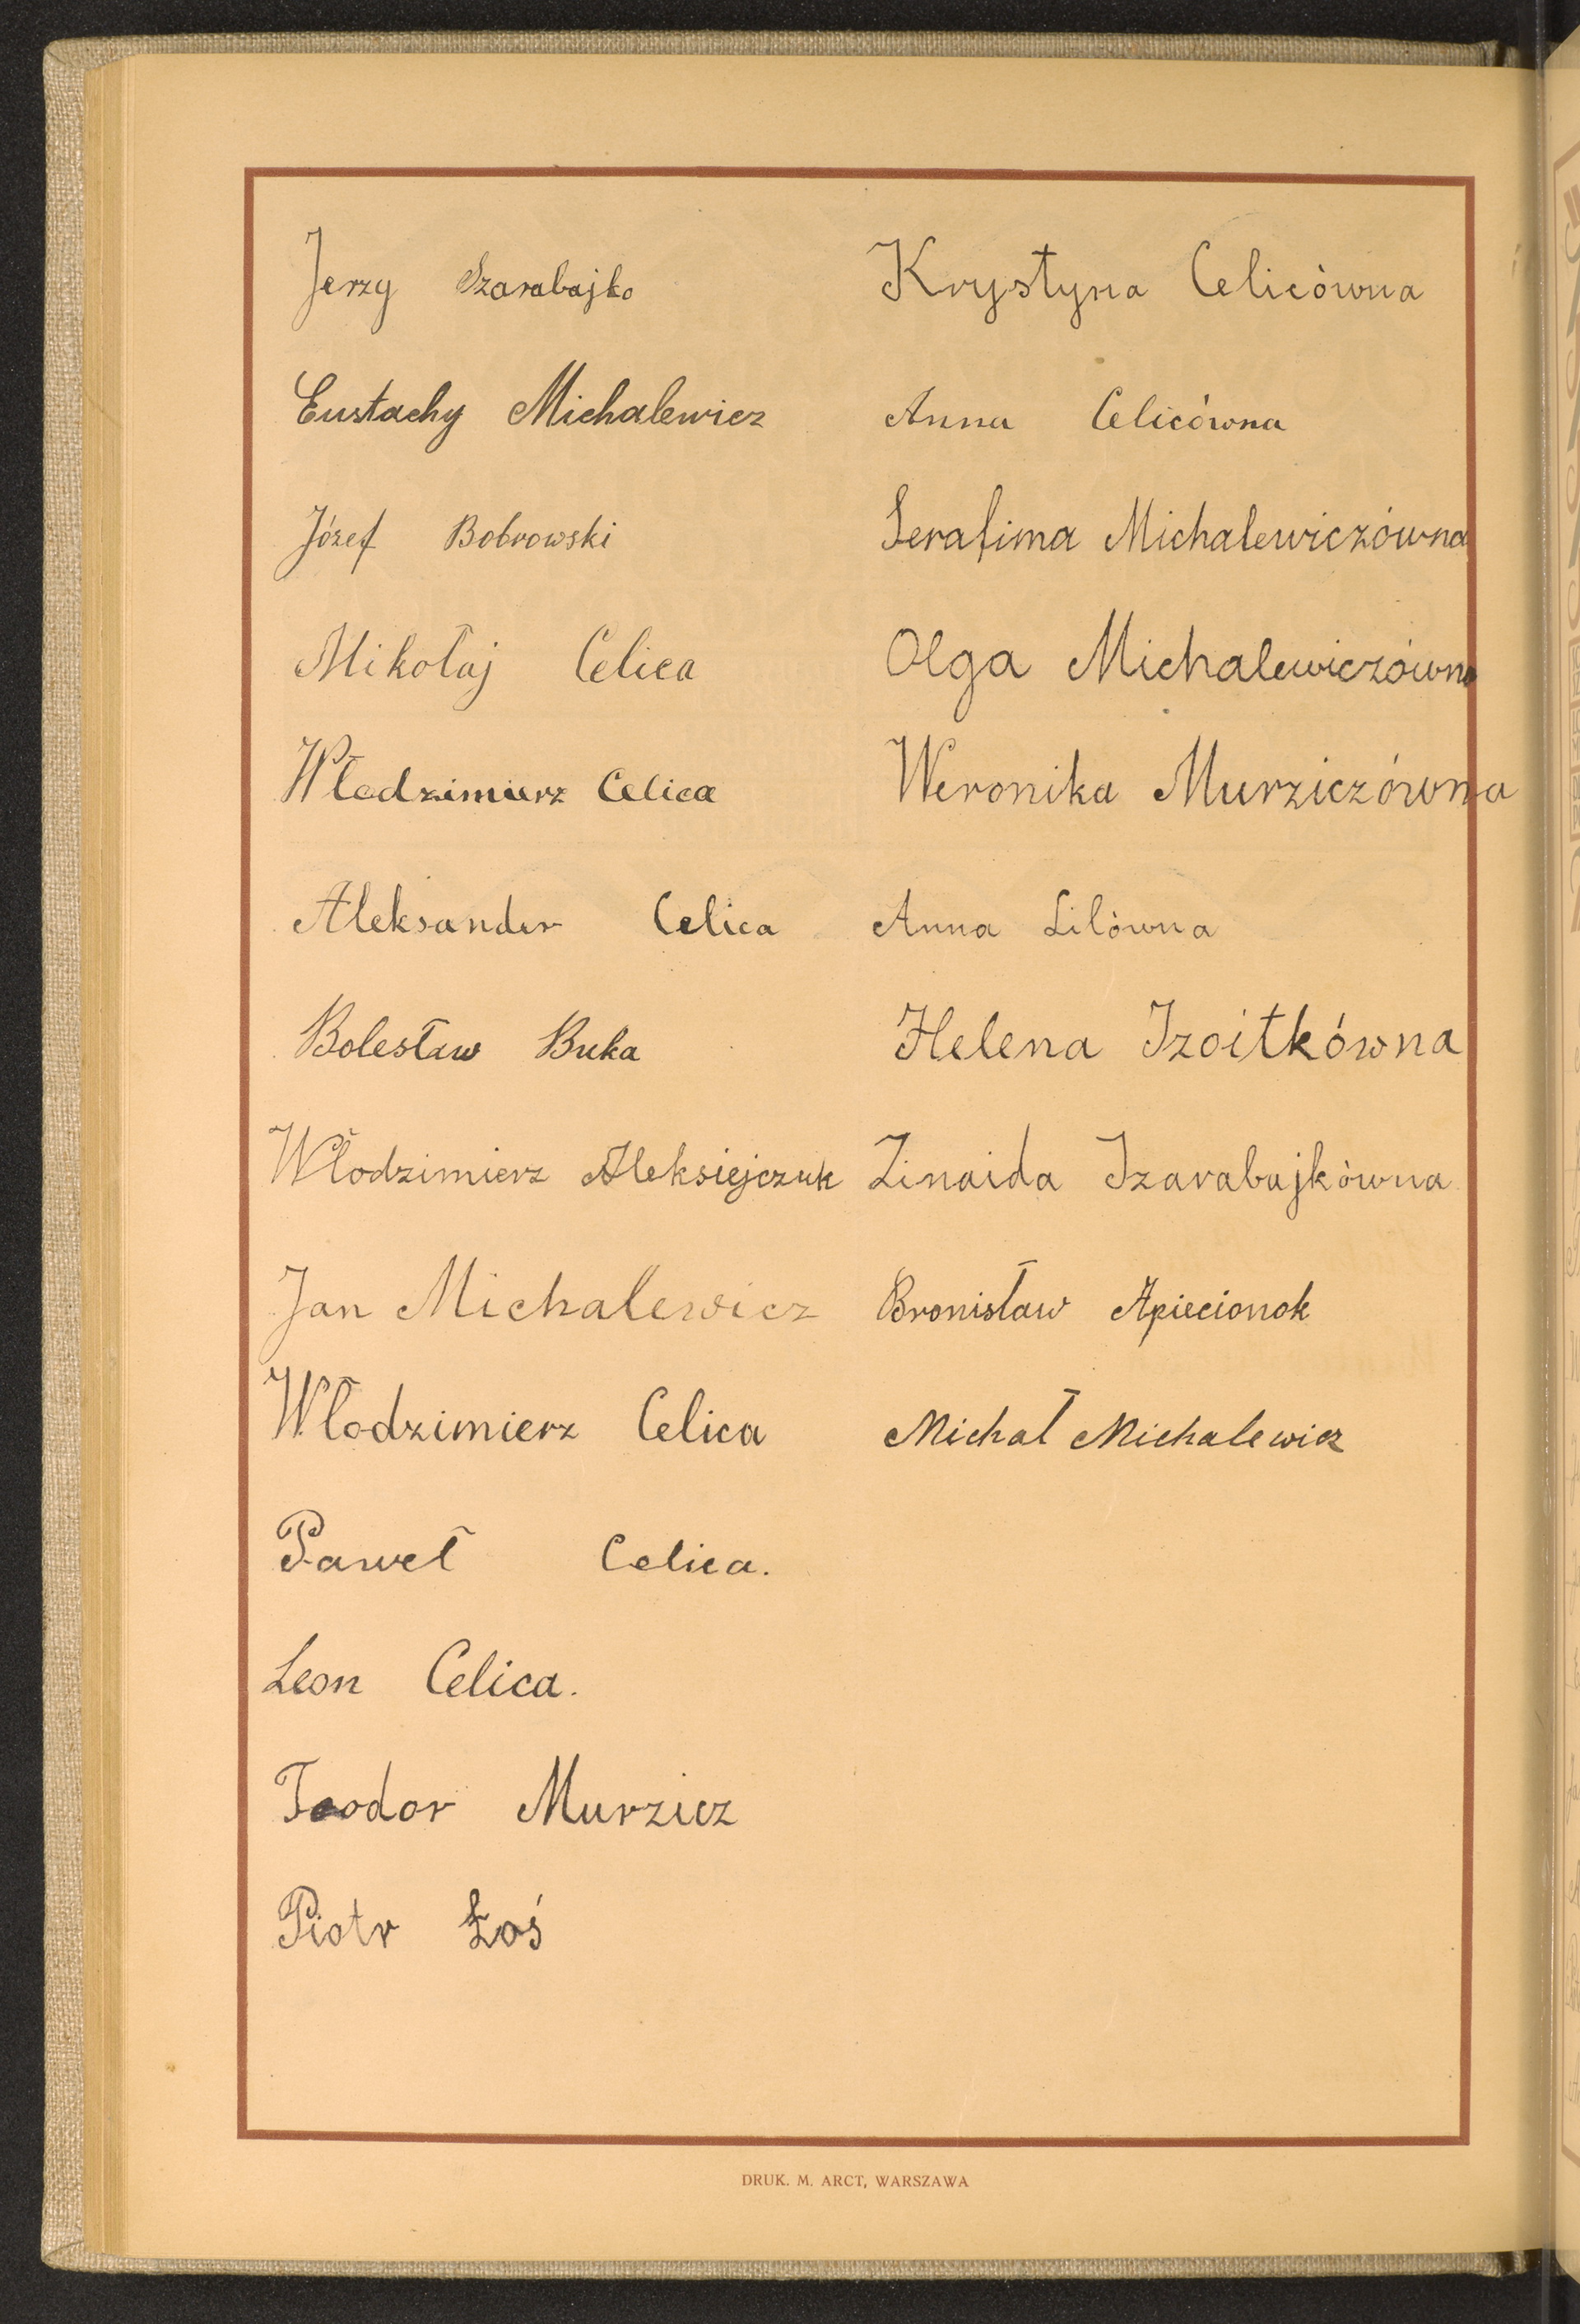 Jerzy Szarabajko
Eustachy Michalewicz
Józef Bobrowski
Mikołaj Celica
Włodzimierz Celica
Aleksander Celica
Bolesław Buka
Włodzimierz Aleksiejczuk
Jan Michalewicz
Włodzimierz Celica
Paweł Celica.
Leon Celica.
Teodor Murzicz
Piotr Łoś
Krystyna Celicówna
Anna Celicówna
Serafima Michalewiczówna
Olga Michalewiczówna
Weronika Murziczówna
Anna Lilówna
Helena Szoitkówna
Zinaida Szarabajkówna
Bronisław Apiecionok
Michał Michalewicz
DRUK. M. ARCT, WARSZAWA